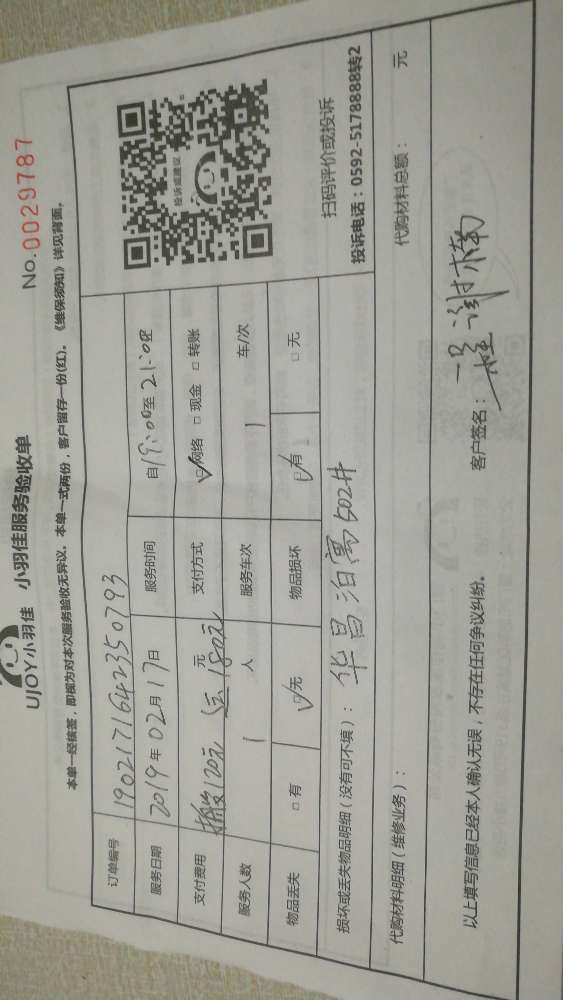 UJOY小羽佳 小羽佳服务验收单 No.0029787
本单一经核签，即视为对本次服务验收无异议，本单一式两份，客户留存一份(红)。《维保须知》详见背面。
订单编号 1902171642350793
服务日期 2019年02月17日 服务时间 自19:00至21:00
支付费用 120元 180元 元 支付方式 ☑网络 □现金 □转账
服务人数 1人 服务车次 1车/次
物品丢失 □有 ☑无 物品损坏 ☑有 □无
投诉或建议
扫码评价或投诉
投诉电话：0592-5178888转2
损坏或丢失物品明细（没有可不填）： 华昌泊寓502#
代购材料明细（维修业务）： 代购材料总额： 元
以上填写信息已经本人确认无误，不存在任何争议纠纷。 客户签名：